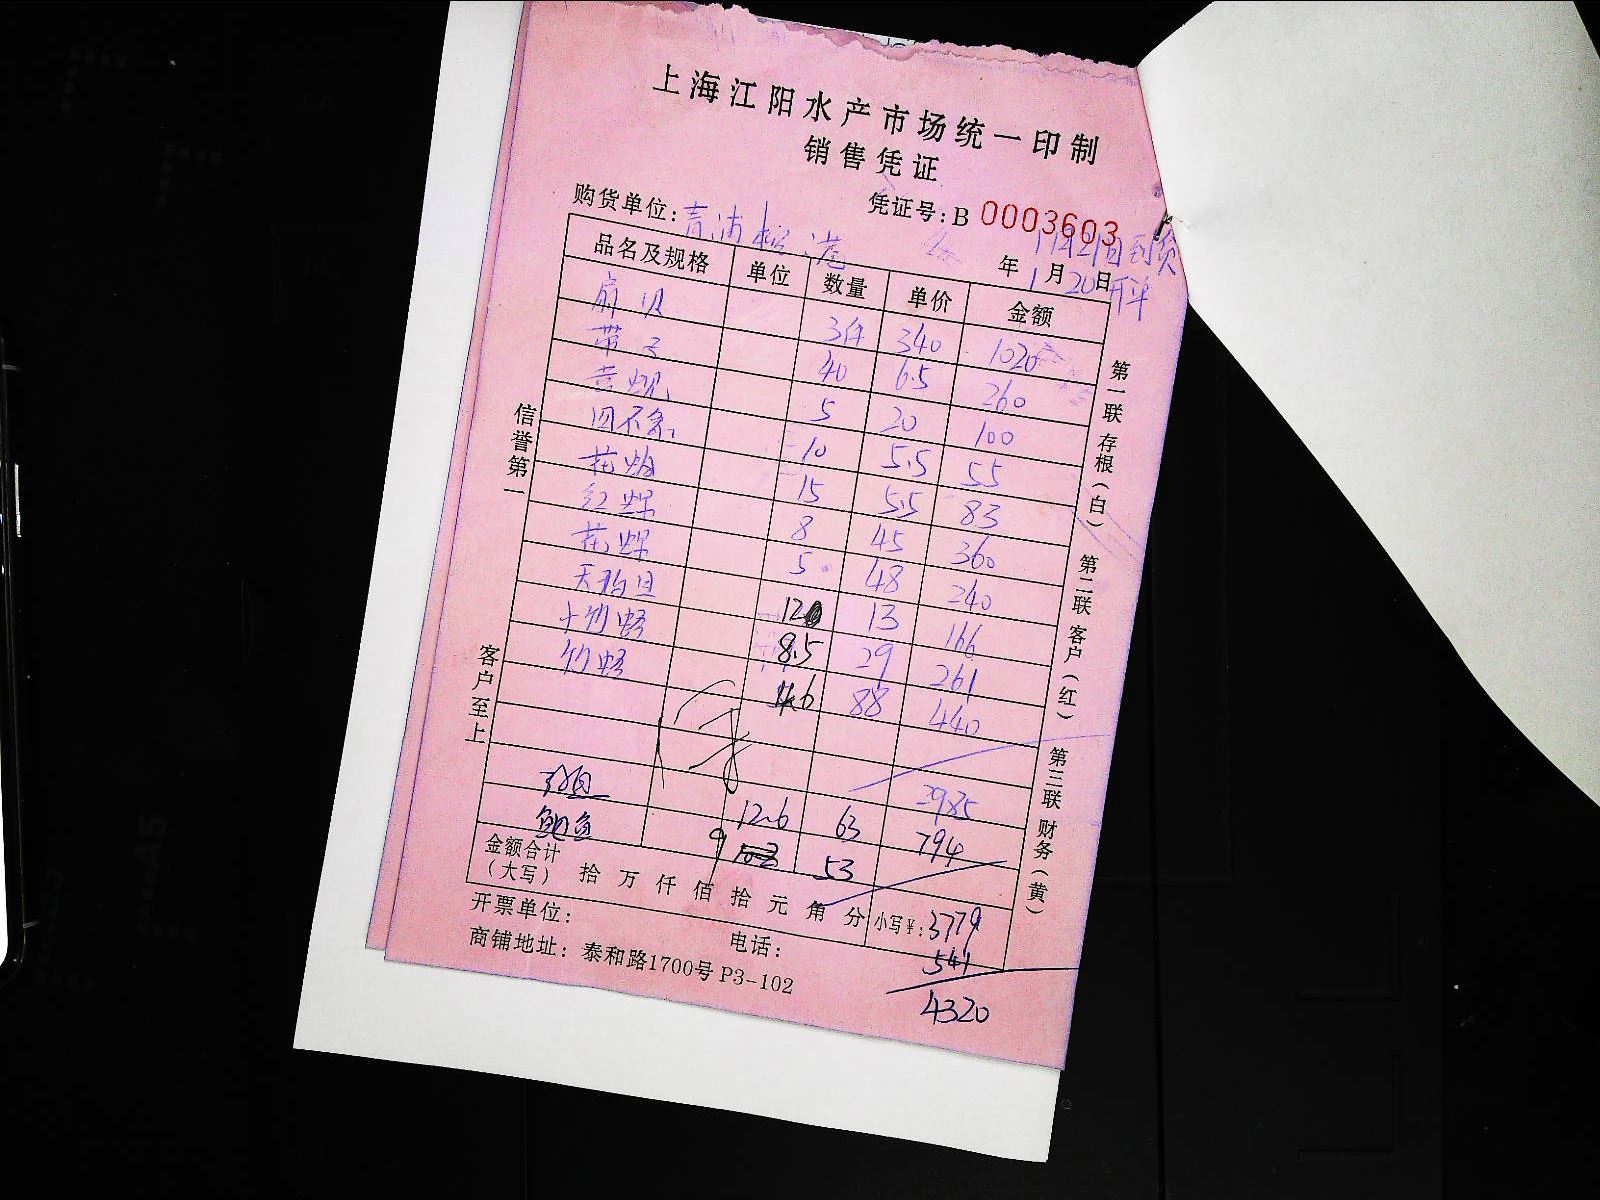 上海江阳水产市场统一印制
销售凭证
凭证号: B 0003603
购货单位: 青浦
1月21日到货
年 1 月 20 日 开单
品名及规格 单位 数量 单价 金额
扇贝 3件 340 1020
带子 40 6.5 260
黄蚬 5 20 100
10 5.5 55
花蛤 15 5.5 83
红螺 8 45 360
花螺 5 48 240
12 13 166
小竹蛏 8.5 29 261
竹蛏 4.6 88 440
2985
12.6 63 794
鲍鱼 9 53
金额合计
(大写) 拾 万 仟 佰 拾 元 角 分 小写¥: 3779
541
4320
开票单位: 电话:
商铺地址: 泰和路1700号 P3-102
信誉第一
客户至上
第一联 存根(白) 第二联 客户(红) 第三联 财务(黄)